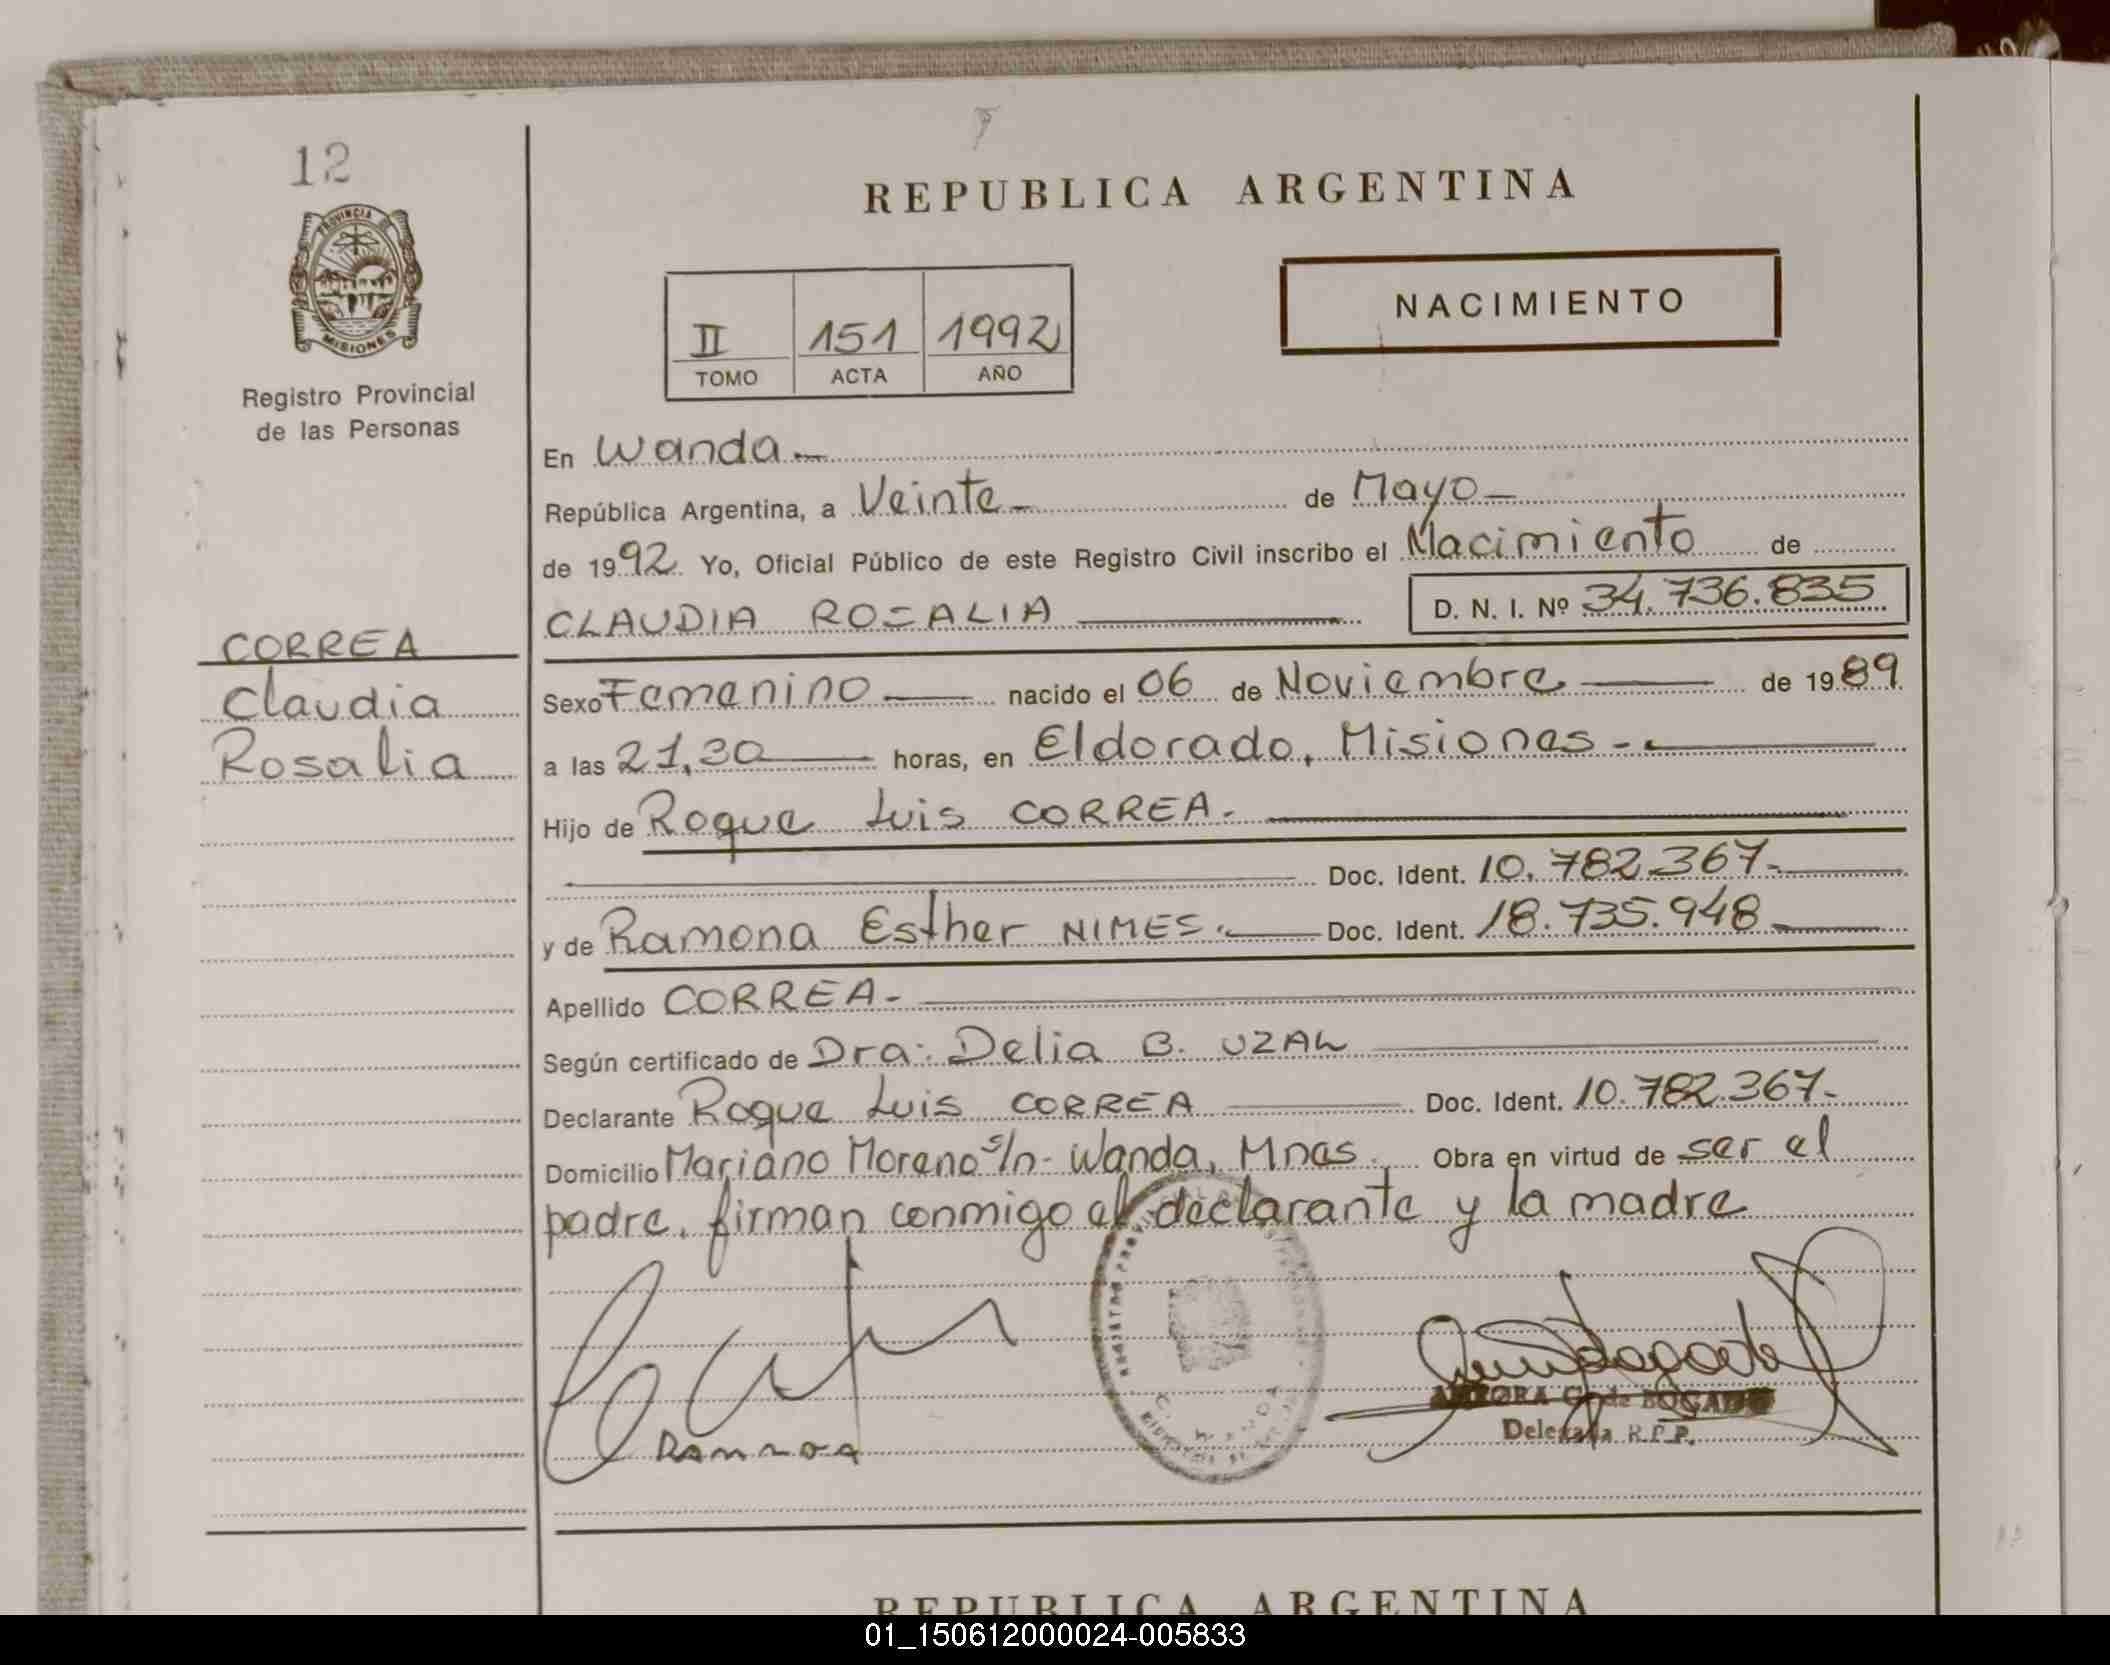 12
PROVINCIA DE
MISIONES
Registro Provincial
de las Personas
CORREA
Claudia
Rosalia
REPUBLICA ARGENTINA
NACIMIENTO
II 151 1992
TOMO ACTA AÑO
En Wanda.-
República Argentina, a Veinte.- de Mayo-
de 1992. Yo, Oficial Público de este Registro Civil inscribo el Nacimiento de
CLAUDIA ROSALIA D. N. I. Nº 34.736.835
Sexo Femenino nacido el 06 de Noviembre de 1989
a las 21,30 horas, en Eldorado, Misiones.-
Hijo de Roque Luis CORREA.-
Doc. Ident. 10.782.367.-
y de Ramona Esther NIMES.- Doc. Ident. 18.735.948
Apellido CORREA.-
Según certificado de Dra. Delia B. UZAL
Declarante Roque Luis CORREA Doc. Ident. 10.782.367.-
Domicilio Mariano Moreno s/n- Wanda, Mnes. Obra en virtud de ser el
padre, firman conmigo el declarante y la madre
G. de BOGADO
Delegada R.P.P.
REPUBLICA ARGENTINA
01_150612000024-005833